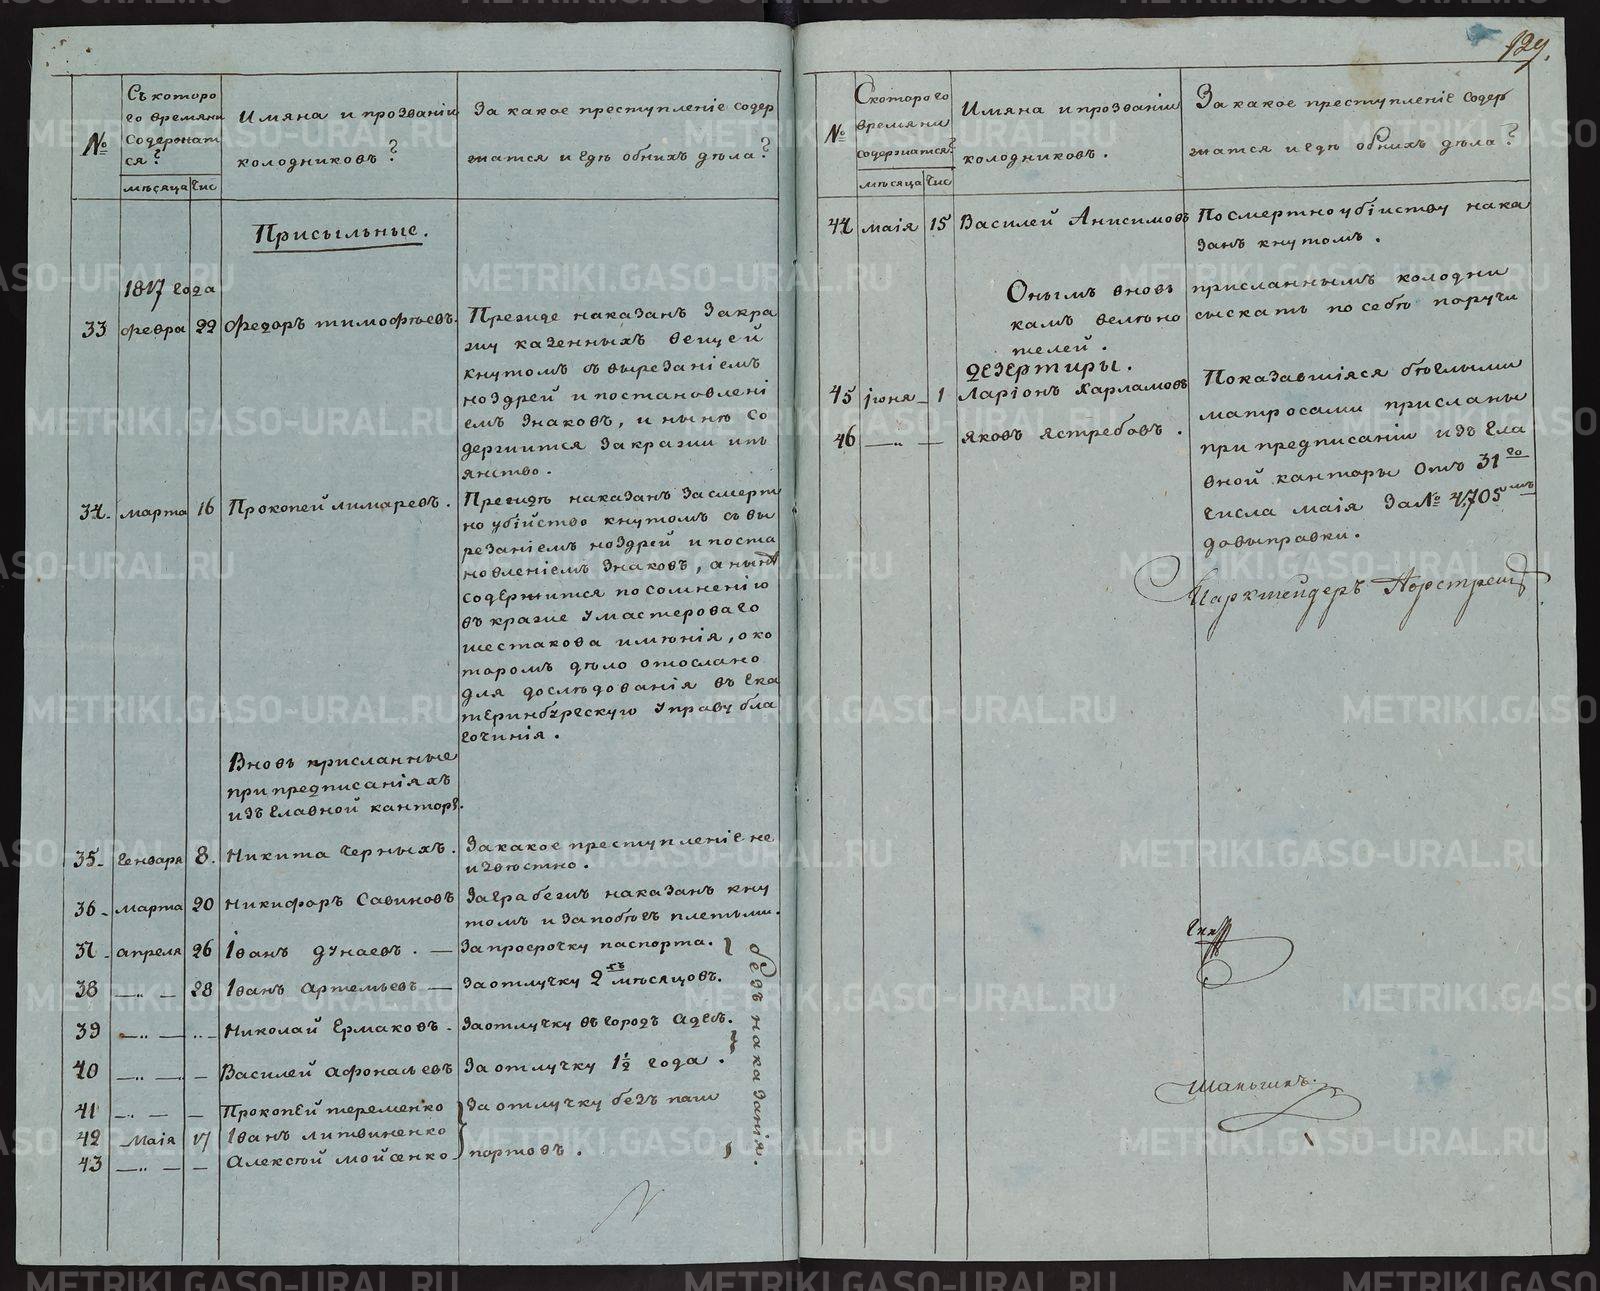 №
Съ которо
го времяни
содержат
ся?
мѣсяца Чис
Имяна и прозваніи
колодниковъ?
За какое преступленіе содер
жатся и гдѣ обнихъ дѣла?
Присыльные.
1817 года
33 февра 22 Федоръ тимофѣевъ.
Прежде наказанъ за кра
жу казенныхъ вещей
кнутомъ съ вырезаніемъ
ноздрей и постановлені
емъ знаковъ, и нынѣ со
держится за кражи и пь
янство.
34. марта 16 Прокопей лимаревъ.
Прежде наказанъ за смерт
но убійство кнутомъ съ вы
резаніемъ ноздрей и поста
новленіемъ знаковъ, а нынѣ
содержится по сомненію
въ краже у мастероваго
шестакова имѣнія, о ко
торомъ дѣло отослано
для дослѣдованія въ Ека
теринбургскую управу бла
гочинія.
Вновь присланные
при предписаніяхъ
изъ главной канторы.
35- Генваря 8. Никита Черныхъ.
За какое преступленіе не
известно.
36- марта 20 Никифоръ Савиновъ
За грабежъ наказанъ кну
томъ и за побѣгъ плетьми.
37- апреля 26 Іванъ дунаевъ. — За просрочку паспорта.
38 —..— 28 Іванъ Артемьевъ — За отлучку 2хъ мѣсяцовъ.
39 —..— ..- Николай Ермаковъ. За отлучку въ городъ Адес.
40 —..— — Василей Афонасьевъ За отлучку 1½ года.
41 —..— — Прокопей теременко За отлучку безъ паш
42 Маія 17 Іванъ литвиненко
43 —..— — Алексѣй мойсенко портовъ.
безъ наказанія.
129.
№
Скотораго
времяни
содержатся?
мѣсяца Чис
Имяна и прозваніи
колодниковъ.
За какое преступленіе содер
жатся и гдѣ обнихъ дѣла?
44 маія 15 Василей Анисимовъ
По смертноубіиству нака
занъ кнутомъ.
Онымъ вновь присланнымъ колодни
камъ велѣно сыскать по себѣ поручи
телей.
дезертиры.
45 іюня - 1 Ларіонъ Харламовъ
46 —..— — Яковъ Ястребовъ.
Показавшіяся бѣглыми
матросами присланы
при предписаніи изъ Гла
вной канторы отъ 31го
числа маія за № 4,705мъ
до выправки.
Маркшейдеръ
Шаньгинъ.
METRIKI.GASO-URAL.RU